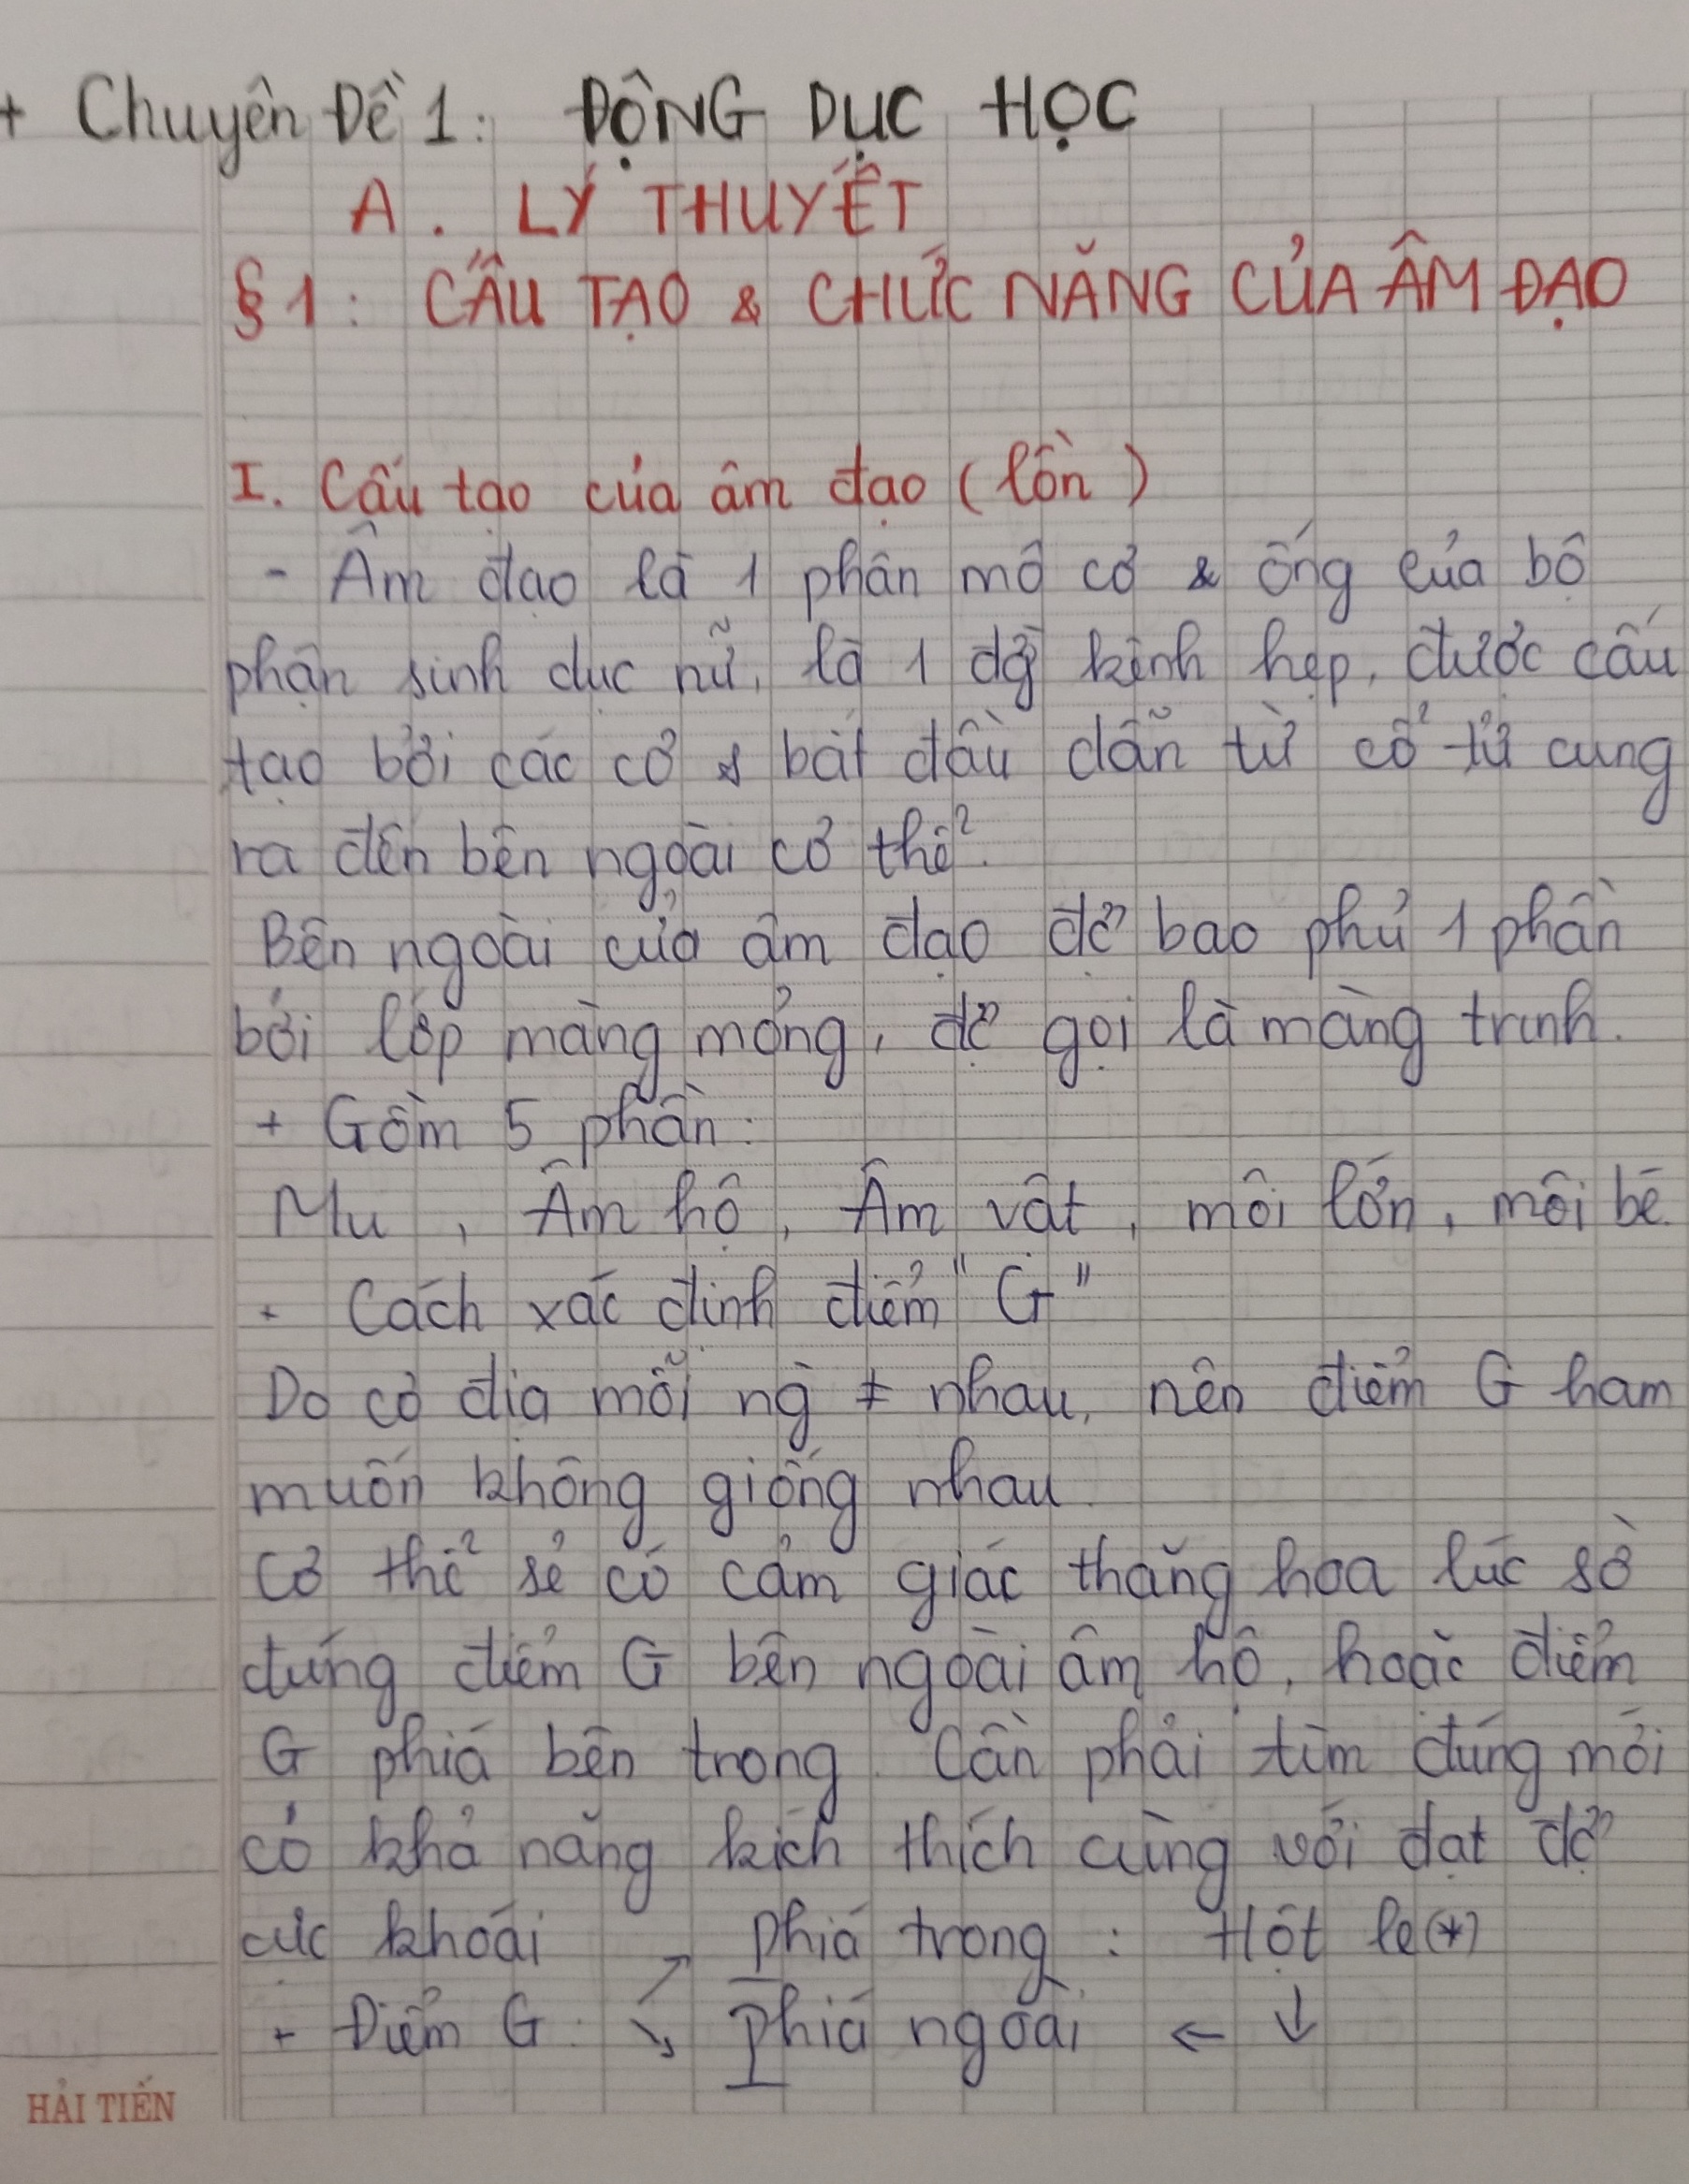 + Chuyên Đề 1: ĐỘNG DỤC HỌC
A. LÝ THUYẾT
§1: CẤU TẠO & CHỨC NĂNG CỦA ÂM ĐẠO
I. Cấu tạo của âm đạo (lồn)
- Âm đạo là 1 phần mô cơ & ống của bộ
phận sinh dục nữ, là 1 kênh hẹp, được cấu
tạo bởi các cơ & bắt đầu dẫn từ cổ tử cung
ra đến bên ngoài cơ thể.
Bên ngoài của âm đạo đc bao phủ 1 phần
bởi lớp màng mỏng, đc gọi là màng trinh.
+ Gồm 5 phần:
Mu, Âm hộ, Âm vật, môi lớn, môi bé.
- Cách xác định điểm "G"
Do cơ địa mỗi ng ≠ nhau, nên điểm G ham
muốn không giống nhau.
Cơ thể sẽ có cảm giác thăng hoa lúc sờ
đúng điểm G bên ngoài âm hộ, hoặc điểm
G phía bên trong. Cần phải tìm đúng mới
có khả năng kích thích cùng với đạt đc
cực khoái
↗ Phía trong : Hột le(*)
+ Điểm G: ↘ Phía ngoài ← ↓
HẢI TIẾN